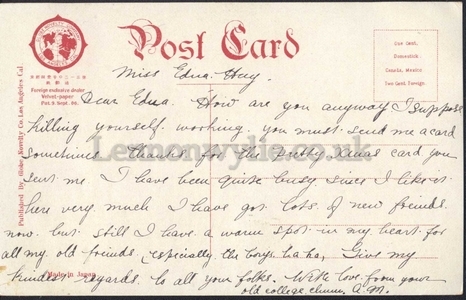 Post Card
Foreign exclusive dealer
Velvet-paper
Pat. 9. Sept. 06.
One Cent.
Domestick.
Canada, Mexico.
Two Cent, Foreign.
Published By Globe Novelty Co. Los Angeles Cal
Made in Japan
Miss Edna Huy.
Dear Edna. How are you anyway I suppose
killing yourself working. you must send me a card
sometimes thanks for the pretty Xmas card you
sent me I have been quite busy since I like it
here very much I have got lots of new friends
now. but still I have a warm spot in my heart for
all my old friends, especially the boys. ha ha, Give my
kindest regards to all your folks. With love from your
old college chum, A.M.
Lemonwylie.co.uk